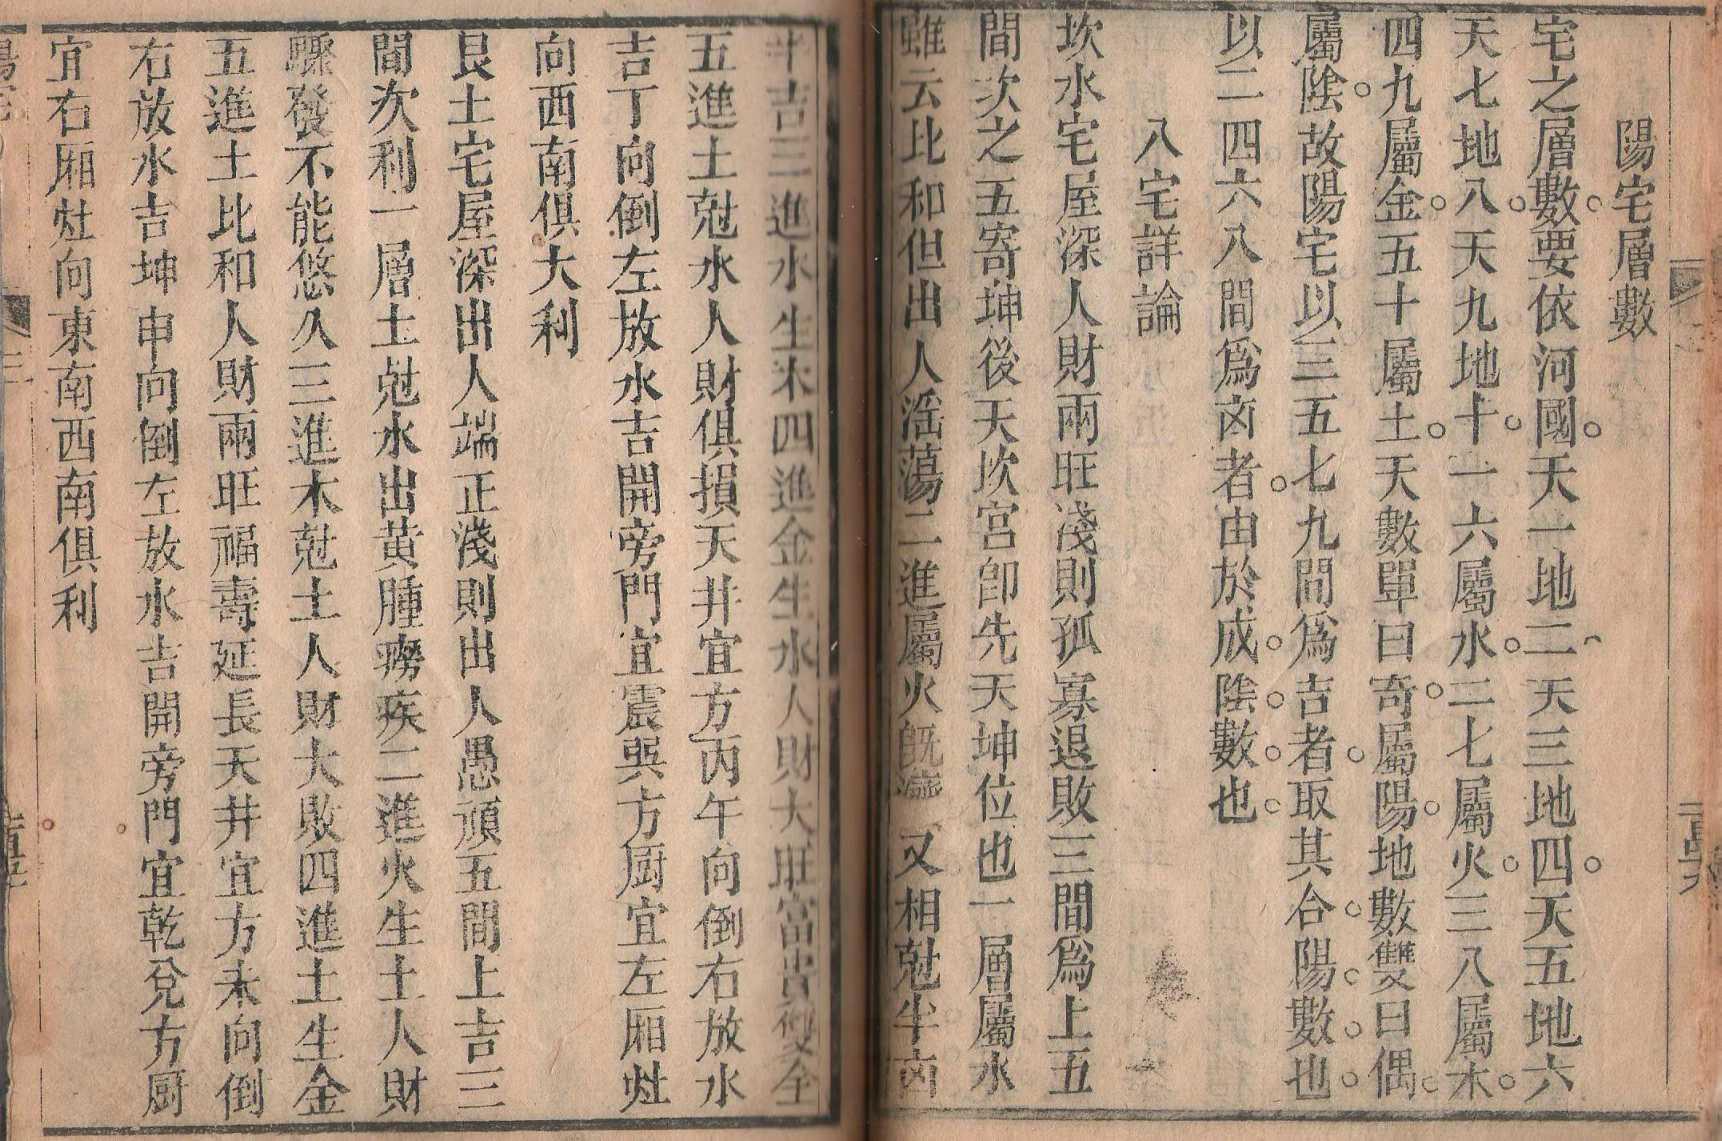 陽宅層數
宅之層數要依河國天一地二天三地四天五地六
天七地八天九地十一六屬水二七屬火三八屬木
四九屬金五十屬土天數單曰奇屬陽地數雙曰偶
屬陰故陽宅以三五七九間爲吉者取其合陽數也
以二四六八間爲㐫者由於成陰數也
八宅詳論
坎水宅屋深人財兩旺淺則孤寡退敗三間爲上五
間次之五寄坤後天坎宫卽先天坤位也一層屬水
雖云比和但出人淫蕩二進屬火旣 又相尅半㐫
半吉三進水生木四進金生水人財大旺富貴雙全
五進土尅水人財俱損天井宜方丙午向倒右放水
吉丁向倒左放水吉開旁門宜震巽方厨宜左厢灶
向西南俱大利
艮土宅屋深出人端正淺則出人愚頑五間上吉三
間次利一層土尅水出黄腫癆疾二進火生土人財
驟發不能悠久三進木尅土人財大敗四進土生金
五進土比和人財兩旺福壽延長天井宜方未向倒
右放水吉坤申向倒左放水吉開旁門宜乾兌方厨
宜右厢灶向東南西南俱利